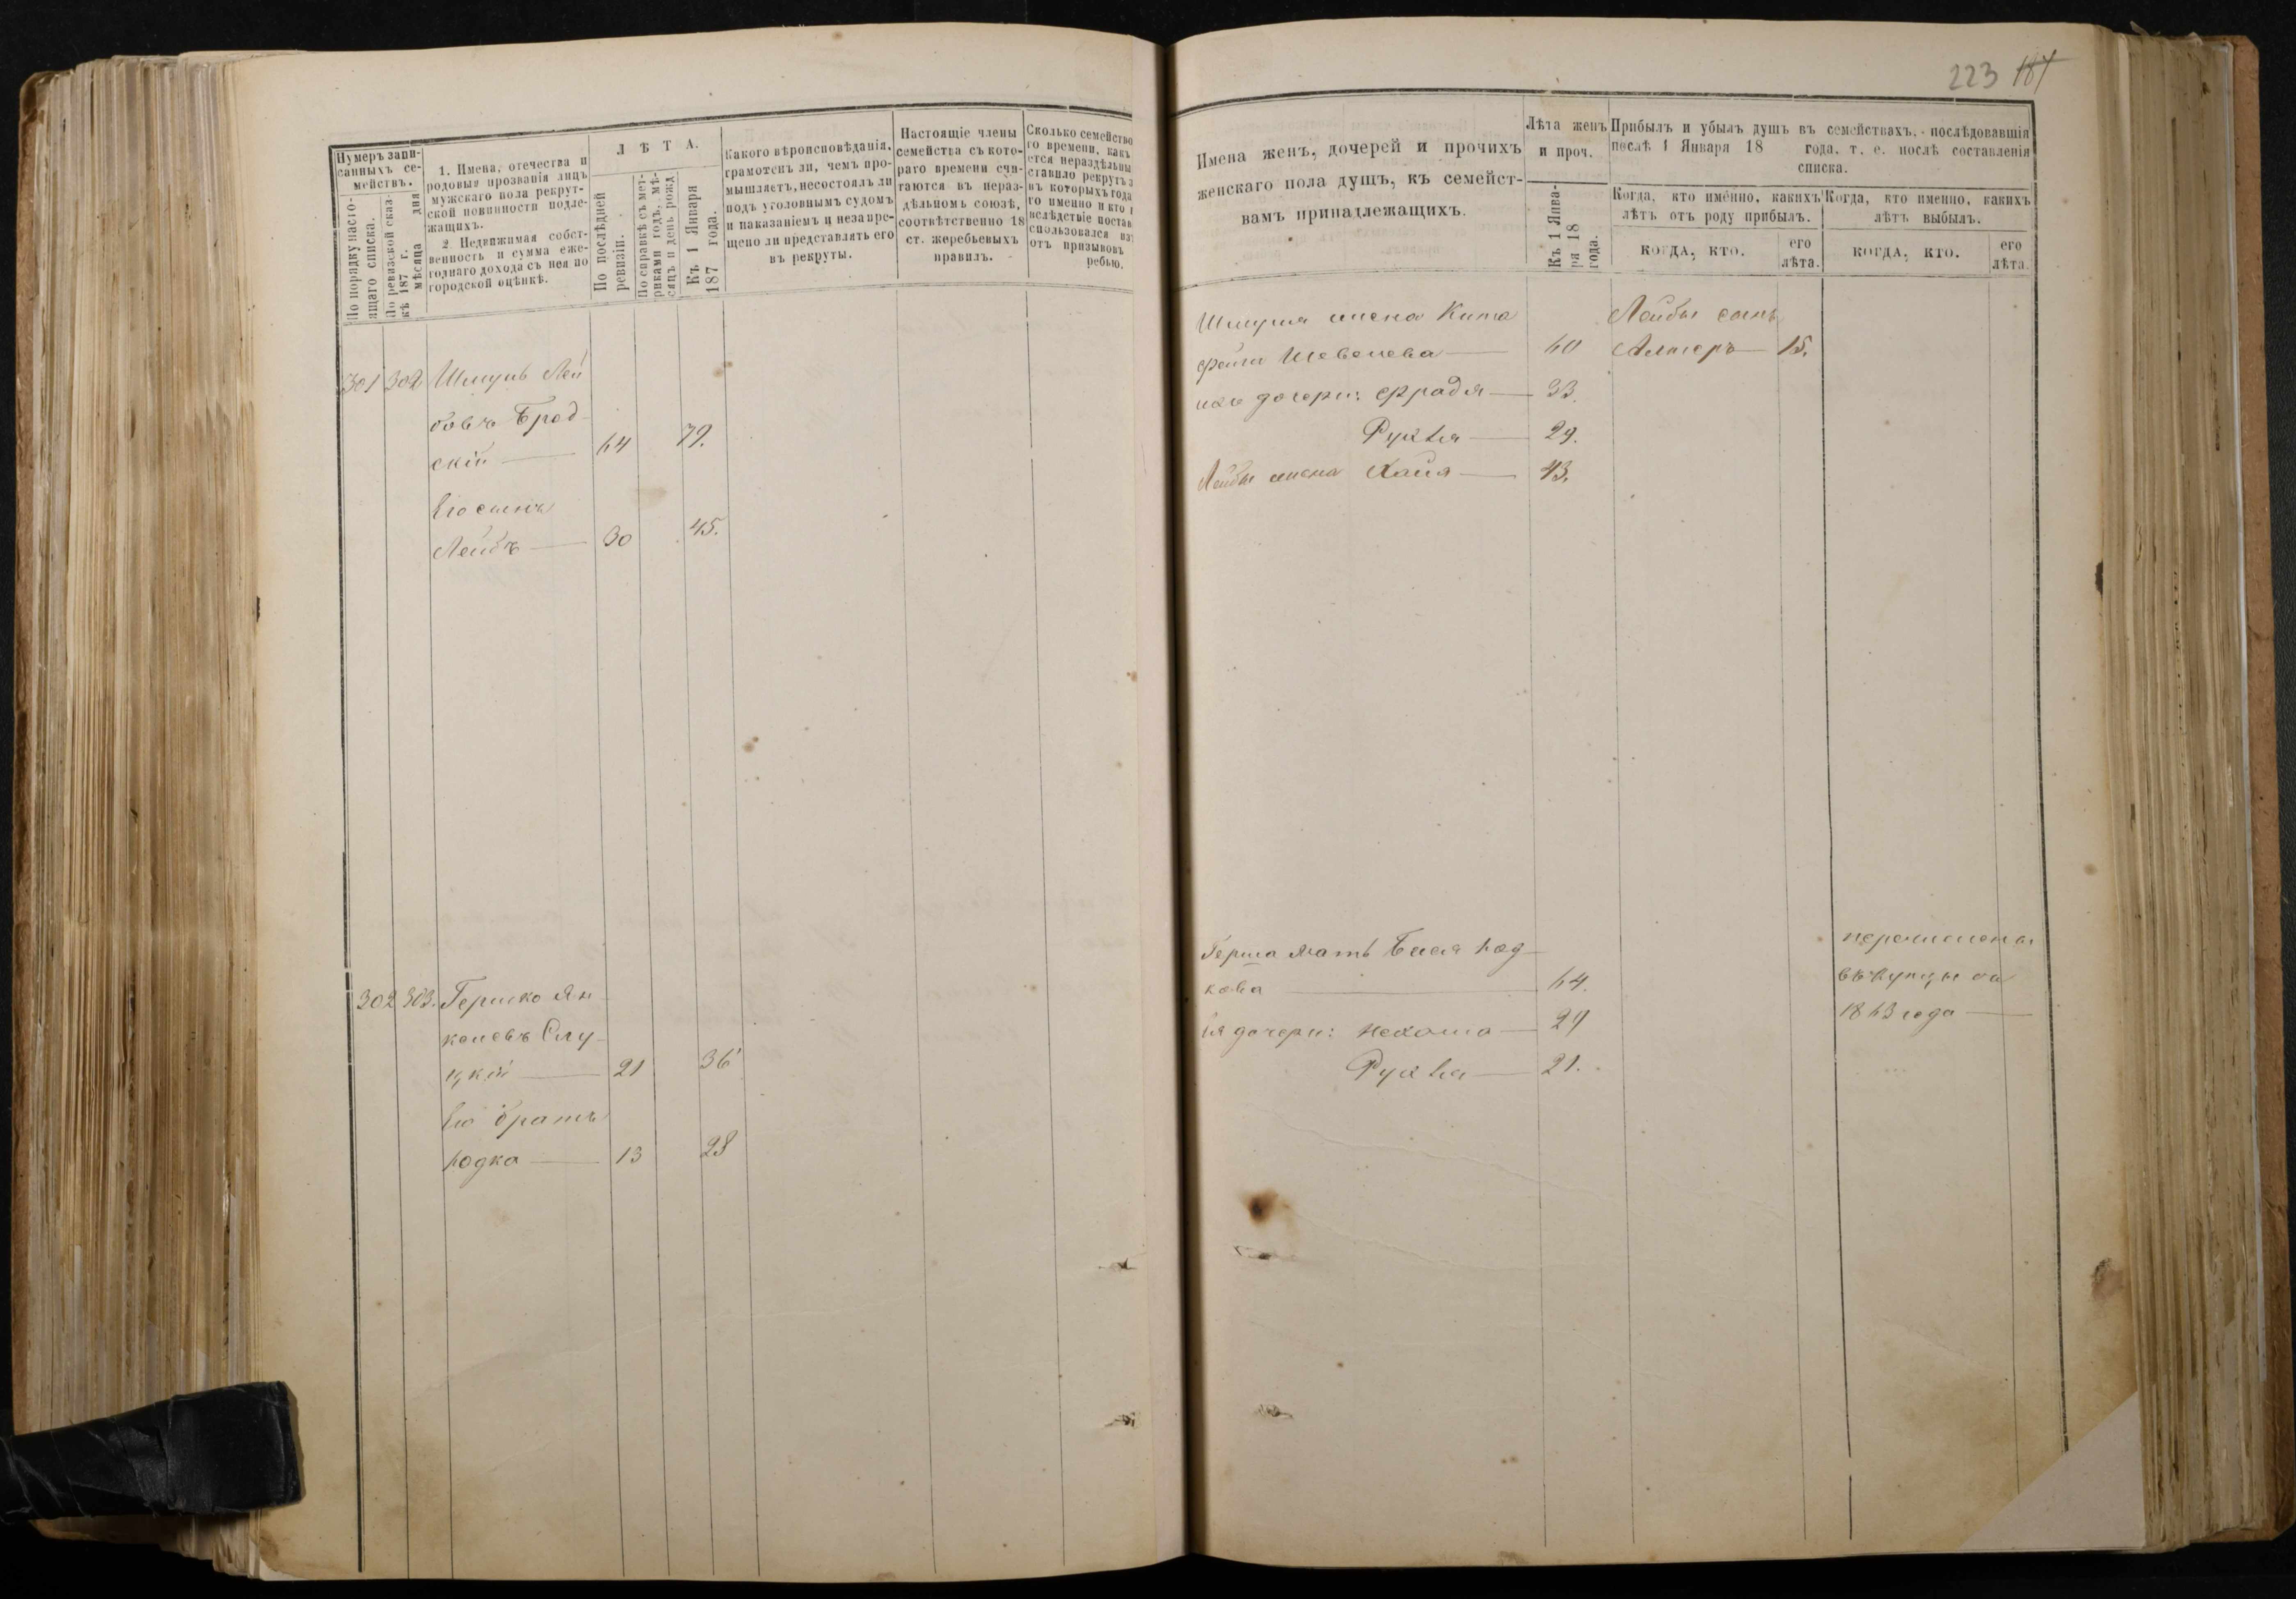 Нумеръ запи-
санныхъ се-
мействъ.
По порядку насто-
ящаго списка.
По ревизской сказ-
кѣ 187 г.
мѣсяца дня
1. Имена, отечества и
родовыя прозванія лицъ
мужскаго пола рекрут-
ской повинности подле-
жащихъ.
2. Недвижимая собст-
венность и сумма еже-
годнаго дохода съ нея по
городской оцѣнкѣ.
ЛѢТА.
По послѣдней
ревизіи.
По справкѣ съ мет-
риками годъ, мѣ-
сяцъ и день рожд
Къ 1 Января
187 года.
Какого вѣроисповѣданія,
грамотенъ ли, чемъ про-
мышляетъ, несостоялъ ли
подъ уголовнымъ судомъ
и наказаніемъ и незапре-
щено ли представлять его
въ рекруты.
Настоящіе члены
семейства съ кото-
раго времени счи-
таются въ нераз-
дѣльномъ союзѣ,
соотвѣтственно 18
ст. жеребьевыхъ
правилъ.
Сколько семейство
го времени, какъ
ется нераздѣльны
ставило рекрутъ
въ которыхъ года
го именно и кто
вслѣдствіе постав
спользовался
отъ призывовъ
ребью.
301 302 Шмуль Лей
бовъ Брод-
скій 64 79.
Его сынъ
Лейбъ 30 45.
302 303. Гершко Ян
келевъ Слу-
цкій 21 36
Его братъ
Юдка 13 28
223 187
Имена женъ, дочерей и прочихъ
женскаго пола душъ, къ семейст-
вамъ принадлежащихъ.
Лѣта женъ
и проч.
Къ 1 Янва-
ря 18
года.
Прибылъ и убылъ душъ въ семействахъ, послѣдовавшія
послѣ 1 Января 18 года, т. е. послѣ составленія
списка.
Когда, кто именно, какихъ
лѣтъ отъ роду прибылъ.
Когда, кто именно, какихъ
лѣтъ выбылъ.
КОГДА, КТО.
его
лѣта.
КОГДА, КТО.
его
лѣта.
Шмуля жена
60
ихъ дочери: Фрадля 33.
Рухля 29.
Лейбы жена Хаия 43.
Лейбы сынъ
Алтеръ 15.
Герша мать Бася Юд-
кова 64.
ея дочери: Нехама
Рухля 21.
перечислены
въ купцы съ
1863 года